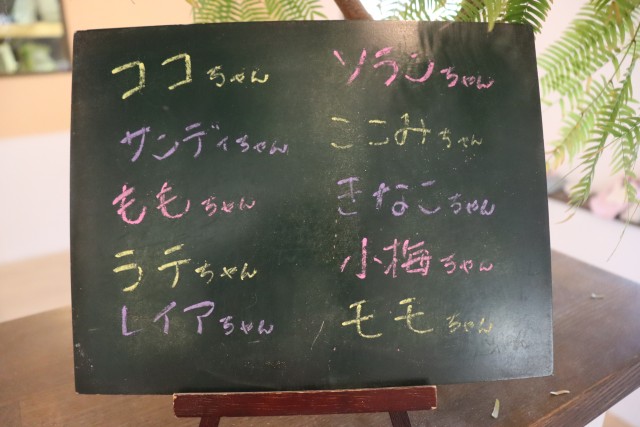 ココちゃん
サンディちゃん
ももちゃん
ラテちゃん
レイアちゃん
ソランちゃん
ここみちゃん
きなこちゃん
小梅ちゃん
モモちゃん